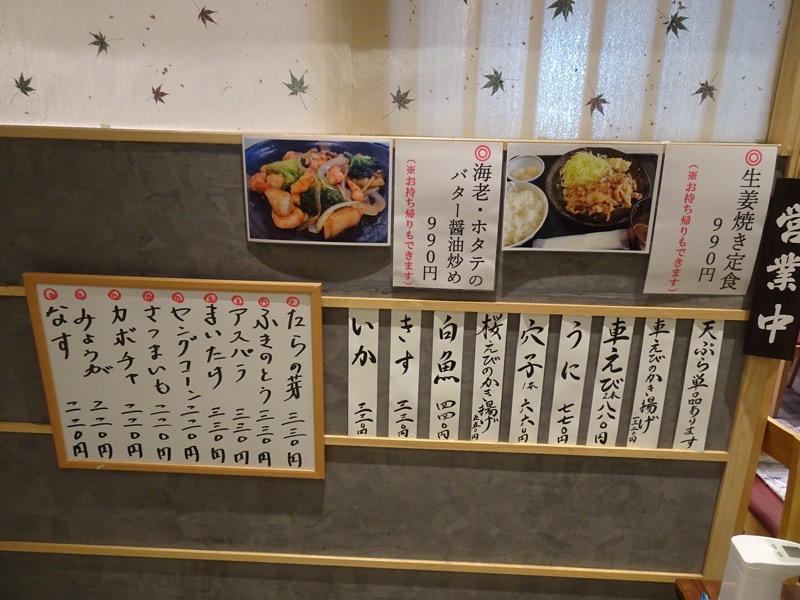 営業中
◎生姜焼き定食
990円
(※お持ち帰りもできます)
◎海老・ホタテの
バター醤油炒め
990円
(※お持ち帰りもできます)
天ぷら単品あります
車えびのかき揚げ
車えび 2本 八八〇円
うに 七七〇円
穴子 1本 六六〇円
桜えびのかき揚げ 五五〇円
白魚 四四〇円
きす 三三〇円
いか 三三〇円
たらの芽 三三〇円
ふきのとう 三三〇円
アスパラ 三三〇円
まいたけ 三三〇円
ヤングコーン 二二〇円
さつまいも 二二〇円
カボチャ 二二〇円
みょうが 二二〇円
なす 二二〇円